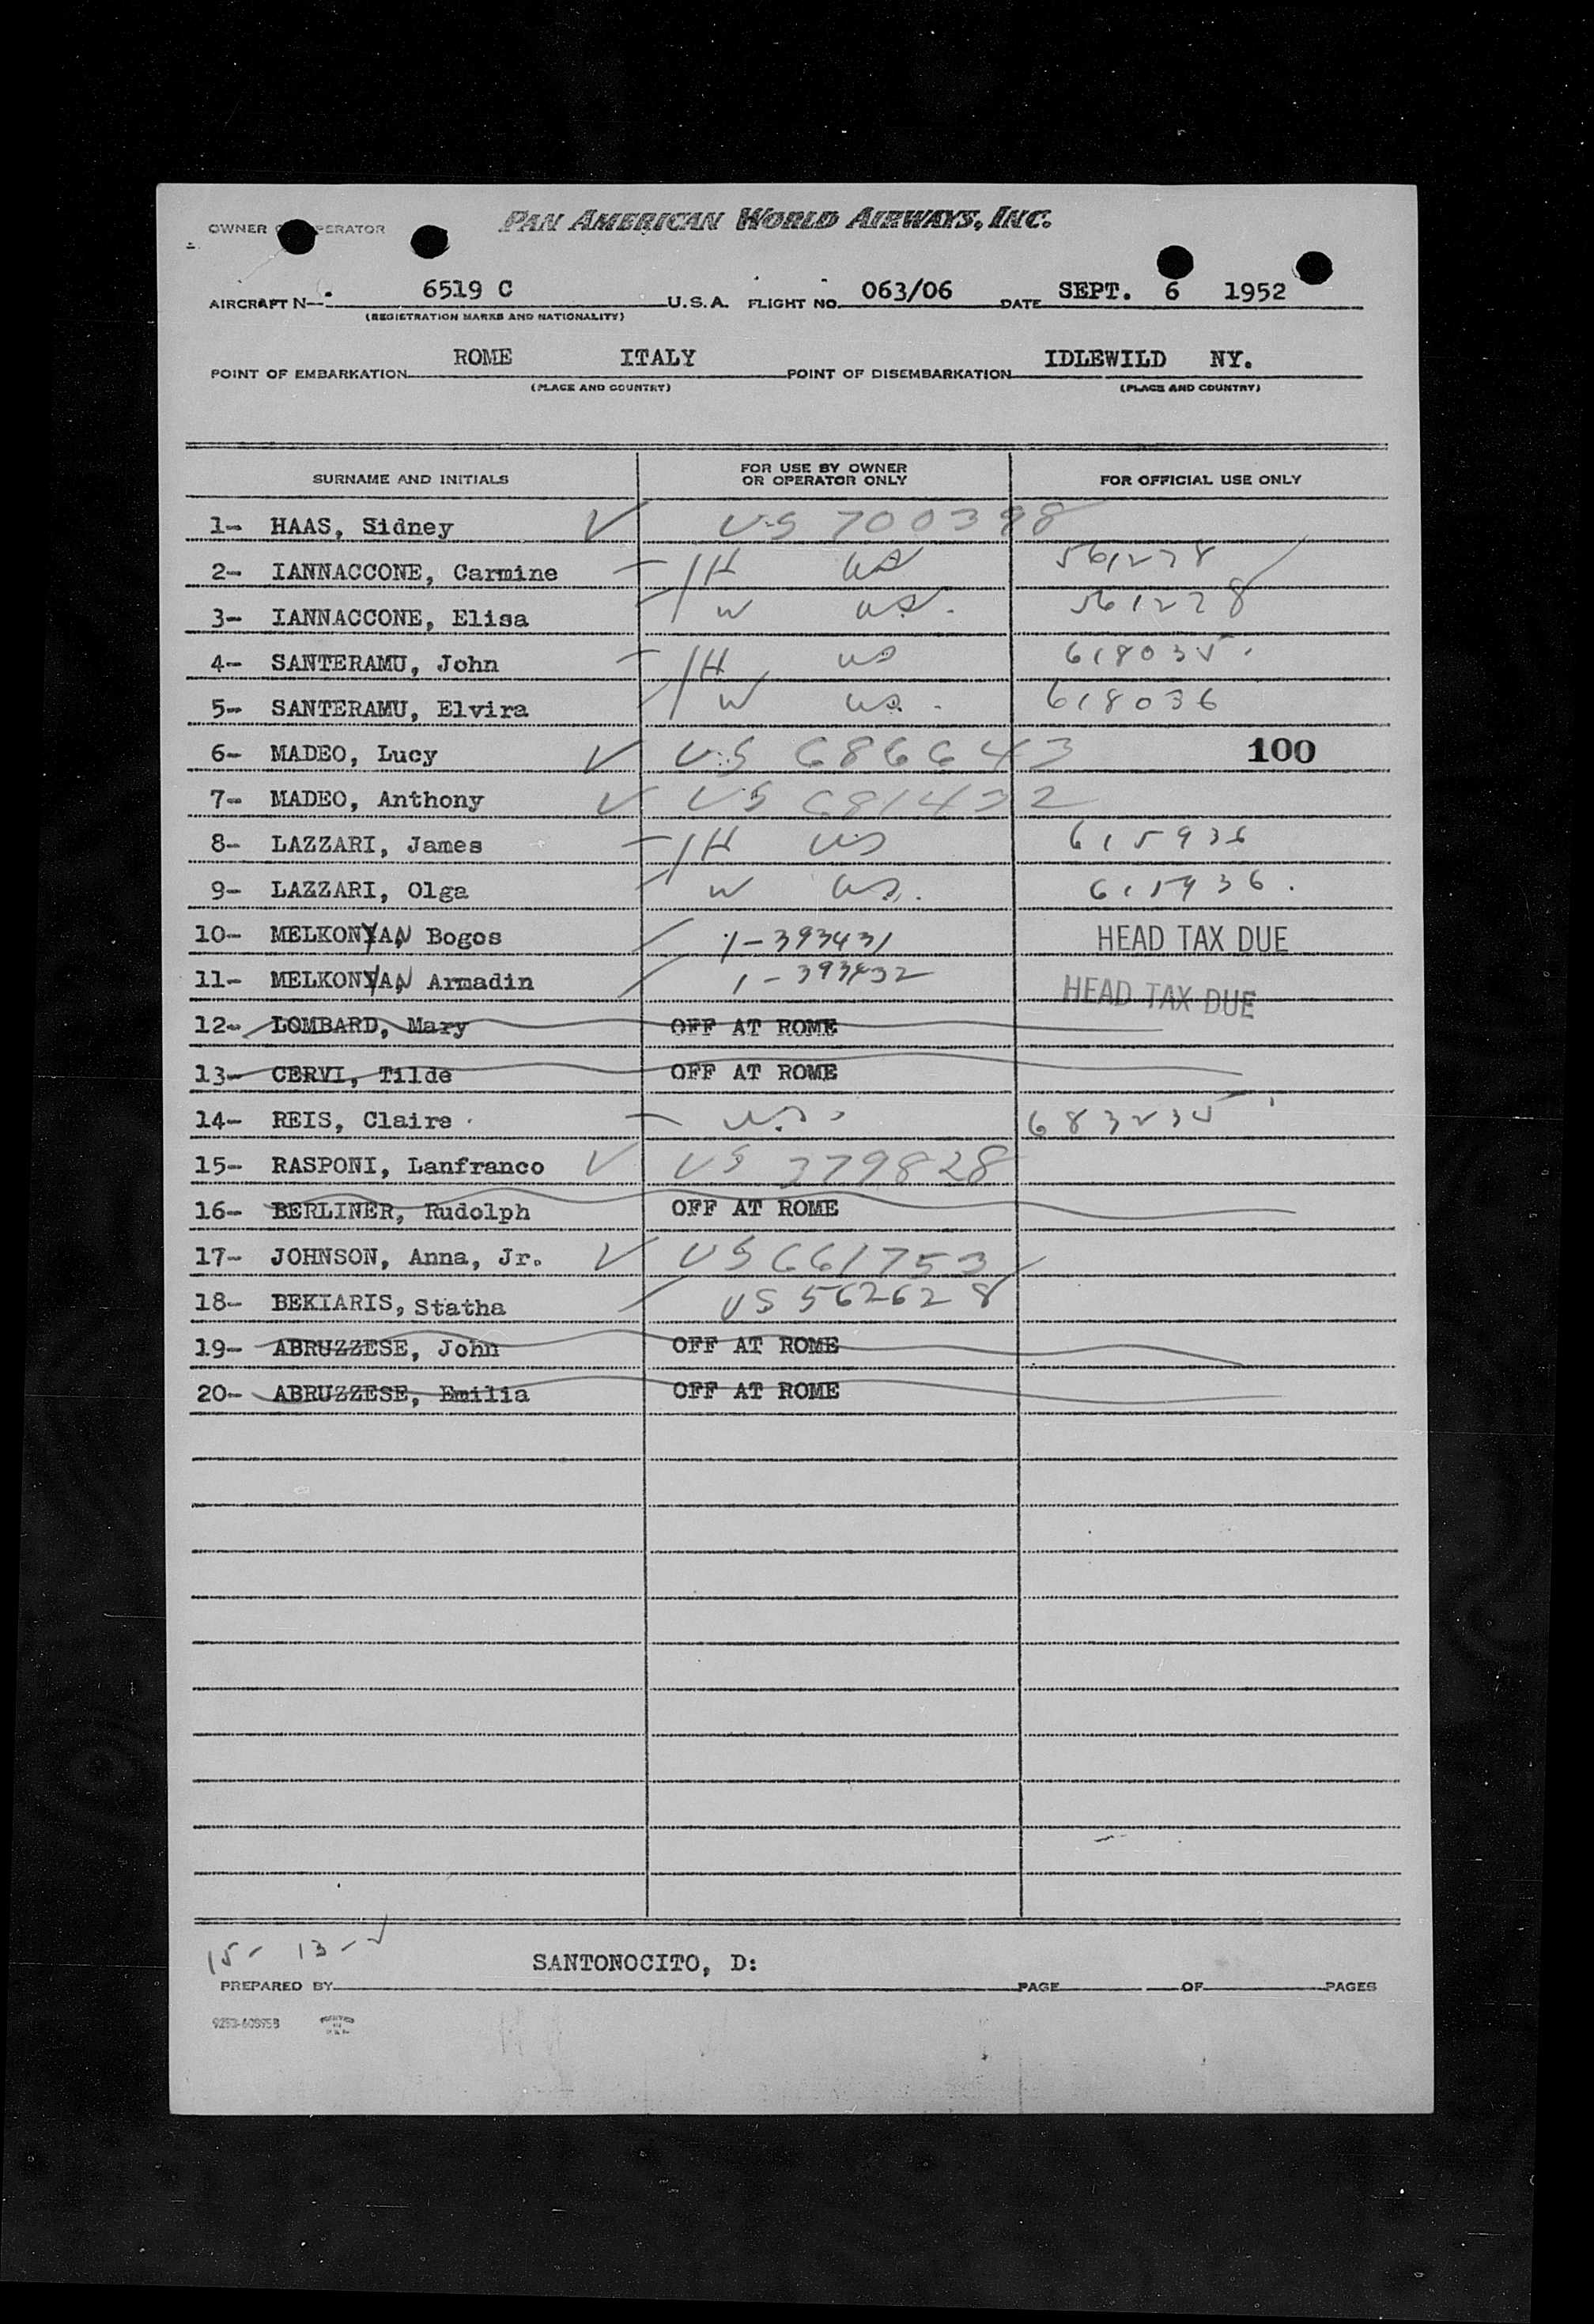 PAN AMERICAN WORLD AIRWAYS, INC.
OWNER OPERATOR
AIRCRAFT N— 6519 C U.S.A. FLIGHT NO. 063/06 DATE SEPT. 6 1952
(REGISTRATION MARKS AND NATIONALITY)
POINT OF EMBARKATION ROME ITALY POINT OF DISEMBARKATION IDLEWILD NY.
(PLACE AND COUNTRY) (PLACE AND COUNTRY)
SURNAME AND INITIALS FOR USE BY OWNER OR OPERATOR ONLY FOR OFFICIAL USE ONLY
1- HAAS, Sidney US 700398
2- IANNACCONE, Carmine H US 561278
3- IANNACCONE, Elisa W US. 561278
4- SANTERAMU, John H US 618035
5- SANTERAMU, Elvira W US. 618036
6- MADEO, Lucy US 686643 100
7- MADEO, Anthony US 681432
8- LAZZARI, James H US 615936
9- LAZZARI, Olga W US. 615936.
10- MELKONYAN Bogos 1-393431 HEAD TAX DUE
11- MELKONYAN Armadin 1-393432 HEAD TAX DUE
12- LOMBARD, Mary OFF AT ROME
13- CERVI, Tilde OFF AT ROME
14- REIS, Claire U.S. 683235
15- RASPONI, Lanfranco US 379828
16- BERLINER, Rudolph OFF AT ROME
17- JOHNSON, Anna, Jr. US 661753
18- BEKIARIS, Statha US 562628
19- ABRUZZESE, John OFF AT ROME
20- ABRUZZESE, Emilia OFF AT ROME
15- 13-
PREPARED BY SANTONOCITO, D: PAGE OF PAGES